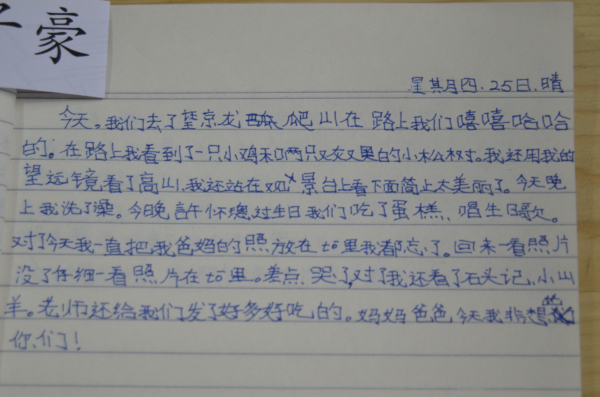 豪
星其月四.25日.晴
今天。我们去了望京龙爬山在路上我们嘻嘻哈哈
的。在路上我看到了一只小鸡和两只又灰又黑的小松树。我还用我的
望远镜看了高山,我还站在观景台上看下面简止太美丽了。今天晚
上我洗了澡。今晚許怀璁过生日我们吃了蛋糕、唱生日歌。
对了今天我一直把我爸妈的照放在to里我都忘了。回来一看照片
没了仔细一看照片在to里。差点哭了,对了我还看了石头记、小山
羊。老师还给我们发了好多好吃的。妈妈爸爸今天我非想
你们!